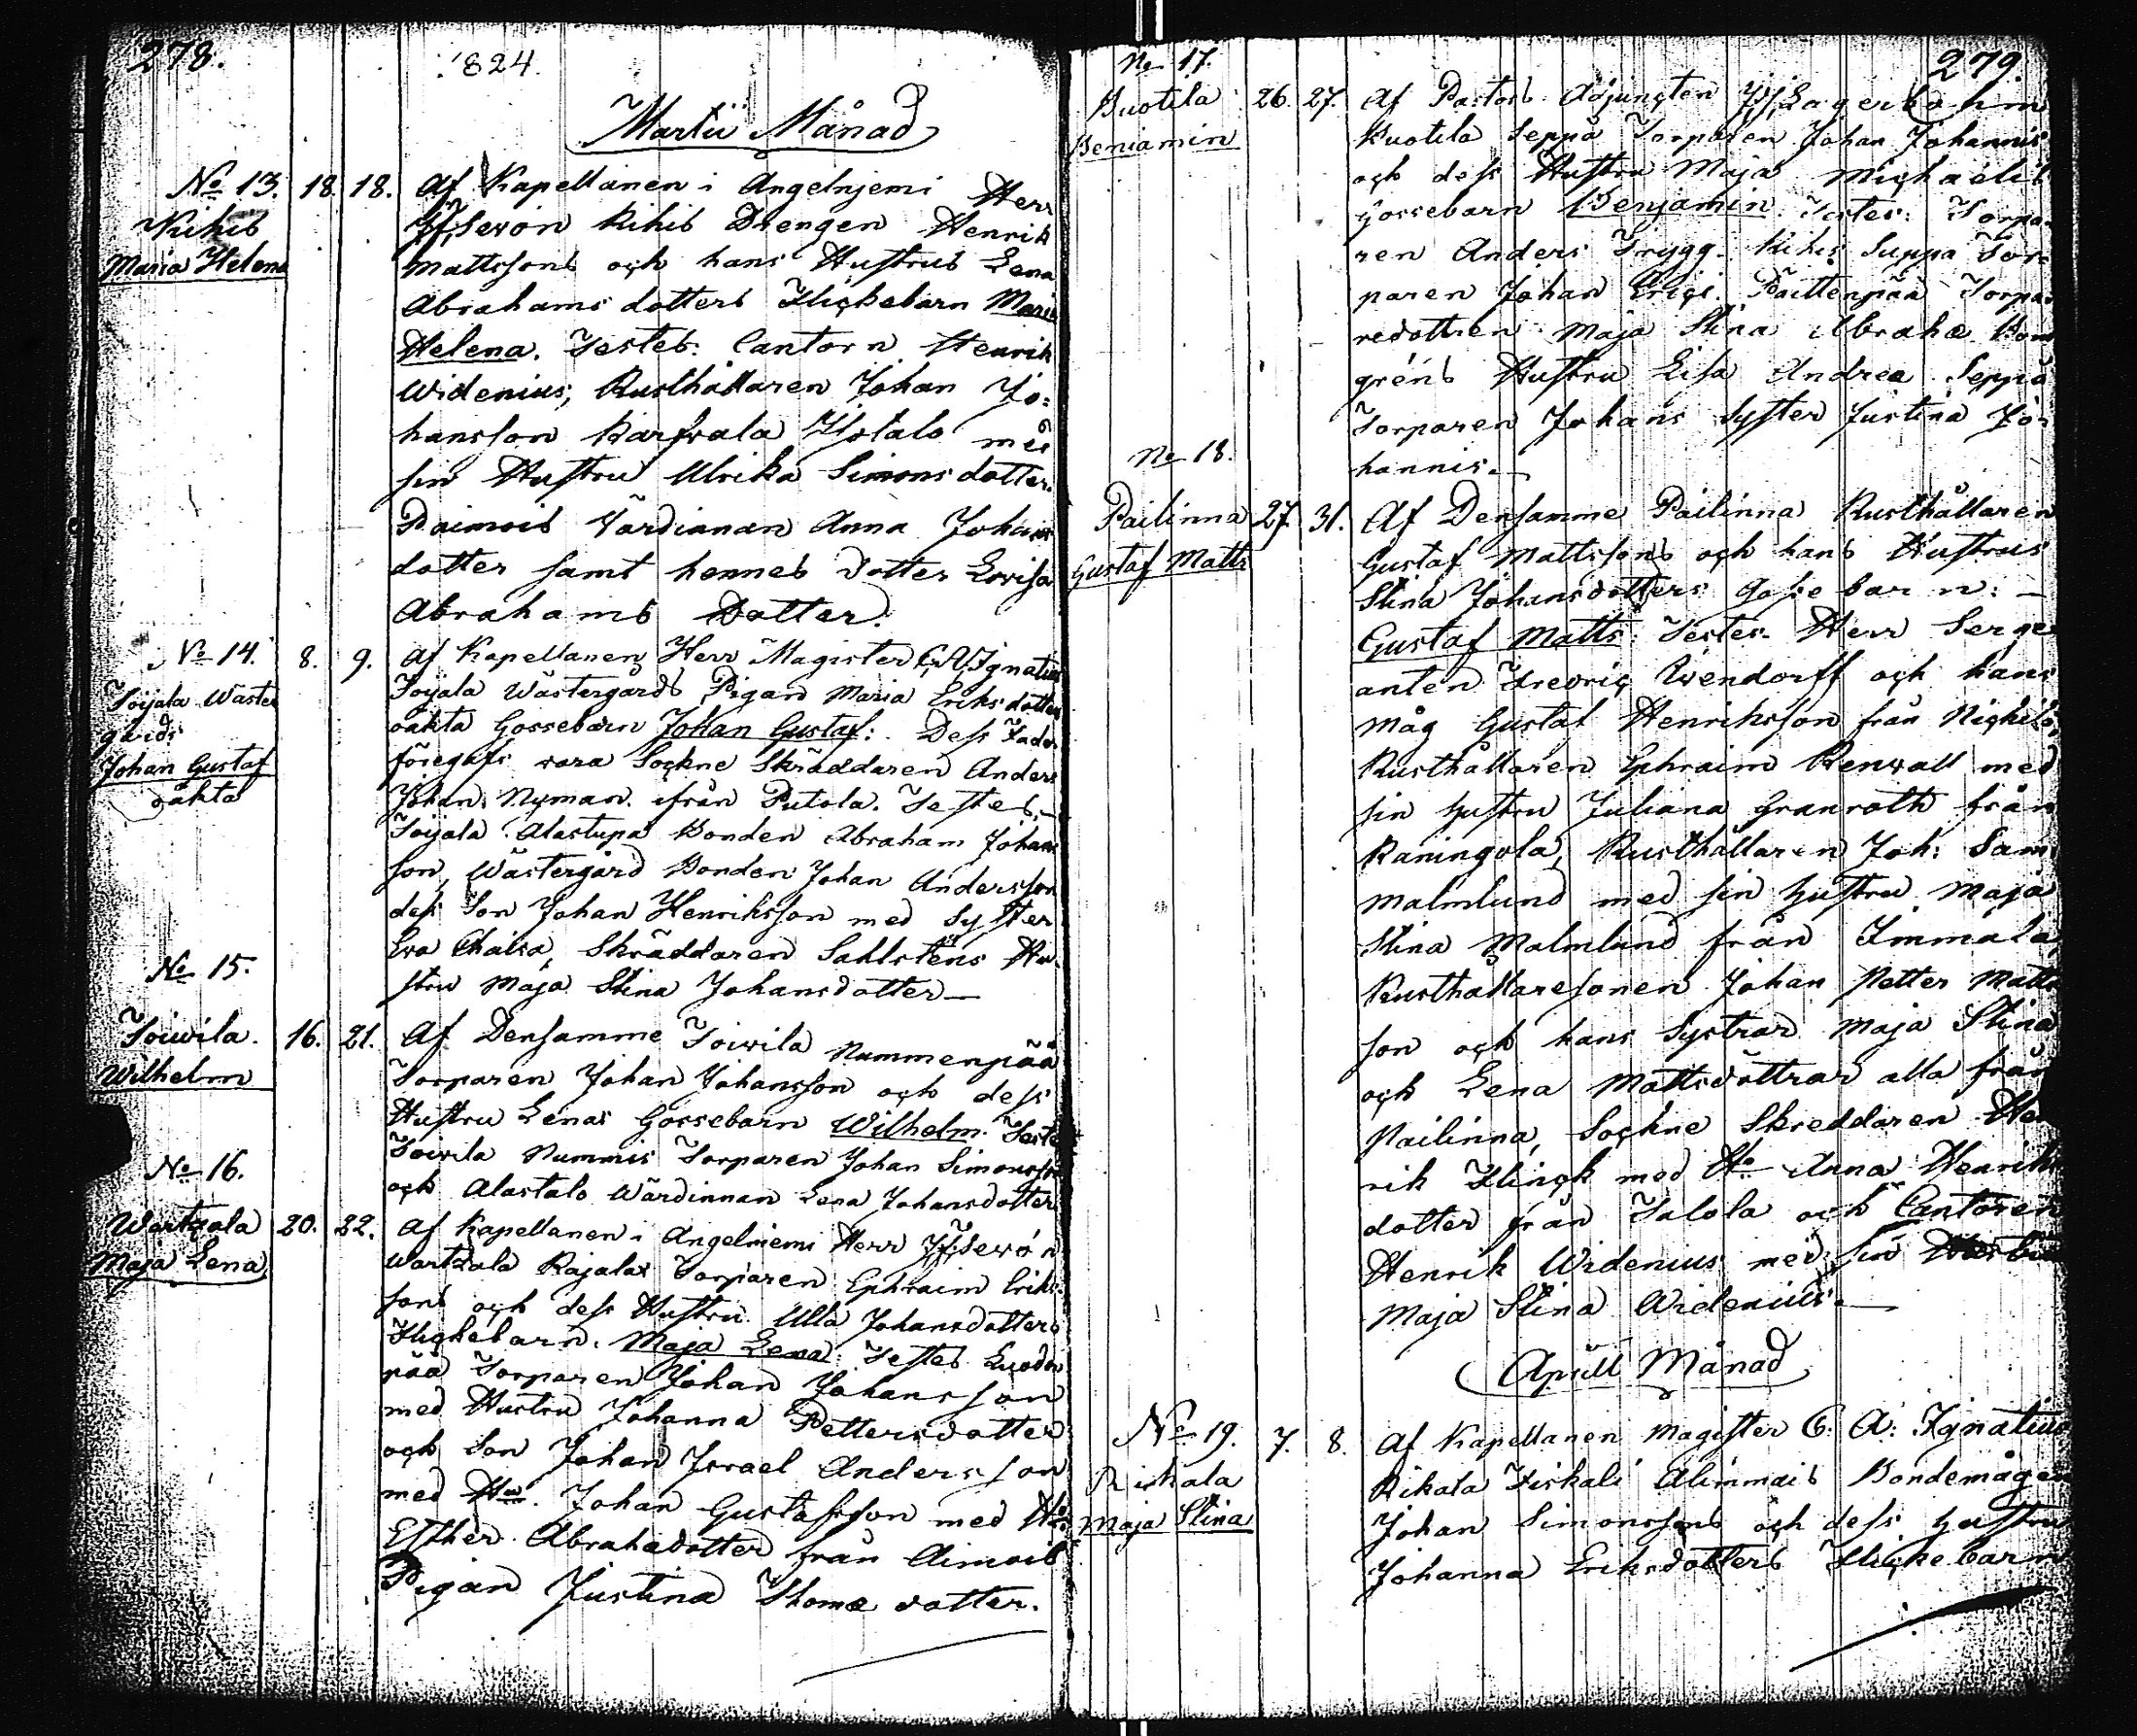 278.
1824.
Martii Månad
No 13. 18. 18. Af Kapellanen i Angelnjemi Herr
Kihis
Maria Helena
Sevón Kihis Drengen Henrik
Mattssons och hans Hustrus Lena
Abrahams dotters Flickebarn Maria
Helena. Testes: Cantorn Henrik
Widenius, Rusthållaren Johan Jo=
hansson Karfvala Ylötalo med
sin Hustru Ulrika Simons dotter.
Raimois Värdinnan Anna Johans
dotter samt hennes dotter Lovisa
Abrahams Dotter.
No 14. 8. 9. Af Kapellanen Herr Magister Ignatius
Toijala Wäster
gårds
Johan Gustaf
oäkta
Toijala Wästergårds Pigan Maria Eriksdotters
oäkta Gossebarn Johan Gustaf: Dess Fader
föregafs vara Sockne Skräddaren Anders
Johan Nyman ifrån Putola. Testes.
Toijala Alastupa Bonden Abraham Johans
son, Wästergård Bonden Johan Andersson
dess Son Johan Henriksson med Syster
Eva Chaisa, Skräddaren Sahlsténs Hu-
stru Maja Stina Johansdotter—
No 15.
Toivila. 16. 21. Af Densamme Toivila Nummenpää
Wilhelm
Torparen Johan Johansson och dess
Hustru Lenas Gossebarn Wilhelm. Testes
Toivila Nummis Torparen Johan Simonsson
och Alastalo Wärdinnan Lena Johansdotter
No 16.
Wartsala 20. 22. Af Kapellanen i Angelniemi Herr Sevón
Maja Lena
Wartsala Rajalas Torparen Ephraim Eriks-
sons och dess Hustru Ulla Johansdotters
Flickebarn. Maja Lena: Testes
pää Torparen Johan Johansson
med Hustru Johanna Pettersdotter
och Son Johan Israel Andersson
med Hu. Johan Gustafsson med Hu
Esther Abrahadotter från Aimois
Pigan Justina Thomæ dotter.
279.
No 17.
Kuotila 26. 27. Af Pastors Adjuncten Lagerbohm
Beniamin
Kuotila Seppä Torparen Johan Johannis
och dess Hustru Maja Michaelis
Gossebarn Benjamin. Testes: Torpa-
ren Anders Trygg. Kihis Suppa Tor-
paren Johan Erici. Torpa
redottren Maja Stina Abrahæ
gréns Hustru Lisa Andreæ Seppä
Torparen Johans Syster Justina Jo-
hannis.
No 18.
Pailinna 27. 31. Af Densamme Pailinna Rusthållaren
Gustaf Matts
Gustaf Mattssons och hans Hustrus
Stina Johansdotters Gossebarn: —
Gustaf Matts: Testes. Herr Serge
anten Fredric Wendorff och hans
Måg Gustaf Henriksson från
Rusthållaren Ephraim Renvall med
sin Hustru Juliana Granroth från
Kaningola, Rusthållaren Joh: Sam:
Malmlund med sin Hustru Maja
Stina Malmlund från Immala,
Rusthållaresonen Johan Petter Matts
son och hans Systrar Maja Stina
och Lena Mattsdöttrar alla från
Pailinna, Sockne Skreddaren Hen
rik Flinck med Ho Anna Henriks
dotter från Salola och Cantoren
Henrik Widenius med sin
Maja Stina Widenius.—
Aprill Månad
No 19. 7. 8. Af Kapellanen Magister C: A: Ignatius
Rikala
Maja Stina
Rikala Fiskali Alimmais Bondemågen
Johan Simonssons och dess Hustru
Johanna Eriksdotters Flicke barn